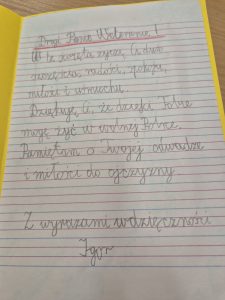 Drogi Panie Weteranie!
W te święta życzę Ci dużo
szczęścia, radości, pokoju,
miłości i uśmiechu.
Dziękuję Ci, że dzięki Tobie
mogę żyć w wolnej Polsce.
Pamiętam o Twojej odwadze
i miłości do ojczyzny
Z wyrazami wdzięczności
Igor